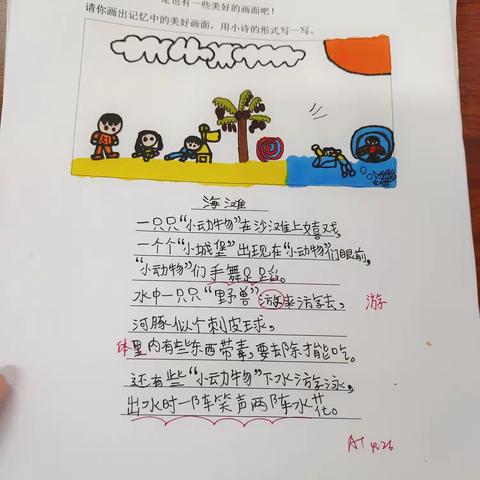 定也有一些美好的画面吧！
请你画出记忆中的美好画面，用小诗的形式写一写。
海滩
一只只“小动物”在沙滩上嬉戏，
一个个“小城堡”出现在“小动物”们眼前，
“小动物”们手舞足蹈。
水中一只只“野兽”游来游去，
游
河豚似个刺皮球，
体里内有些东西带毒，要去除才能吃。
还有些“小动物”下水游泳，
出水时一阵笑声两阵水花。
A+ 4.26